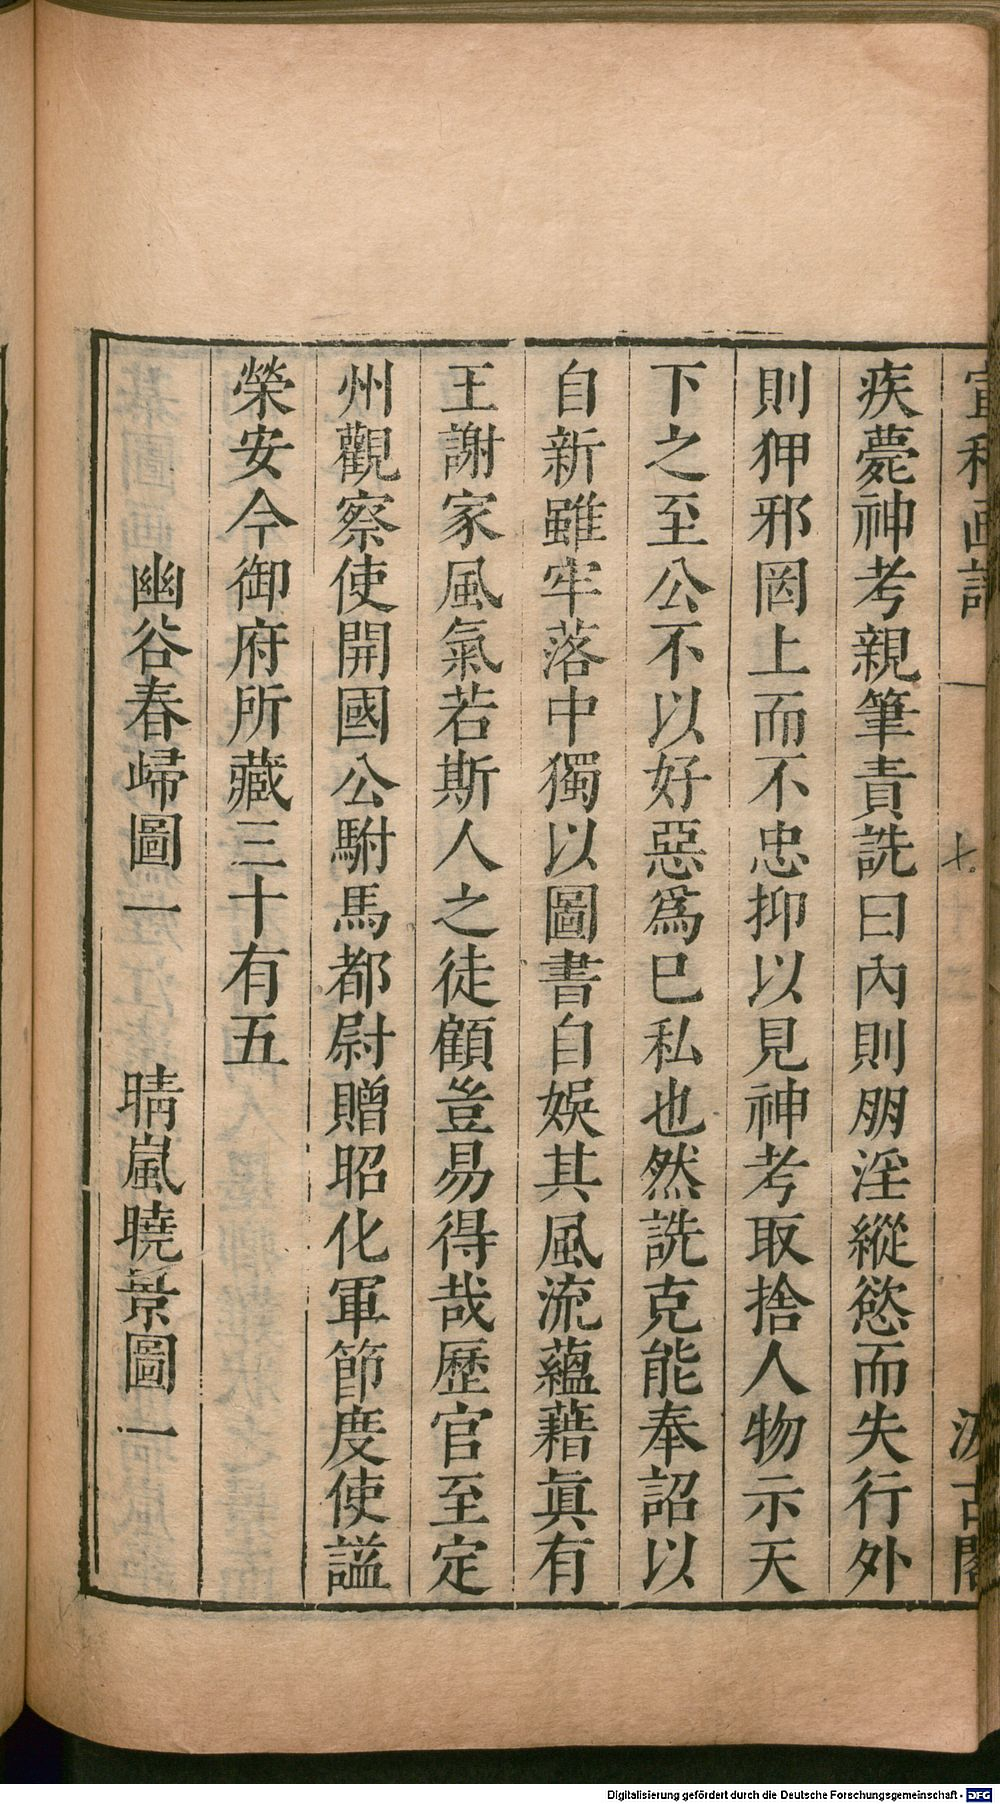 宣和画譜
七
十二
汲古閣
疾薨神考親筆責詵曰內則朋淫縱慾而失行外
則狎邪罔上而不忠抑以見神考取捨人物示天
下之至公不以好惡爲巳私也然詵克能奉詔以
自新雖牢落中獨以圖書自娛其風流蘊藉眞有
王謝家風氣若斯人之徒顧豈易得哉歷官至定
州觀察使開國公駙馬都尉贈昭化軍節度使謚
榮安今御府所藏三十有五
幽谷春歸圖一　晴嵐曉景圖一
Digitalisierung gefördert durch die Deutsche Forschungsgemeinschaft - DFG